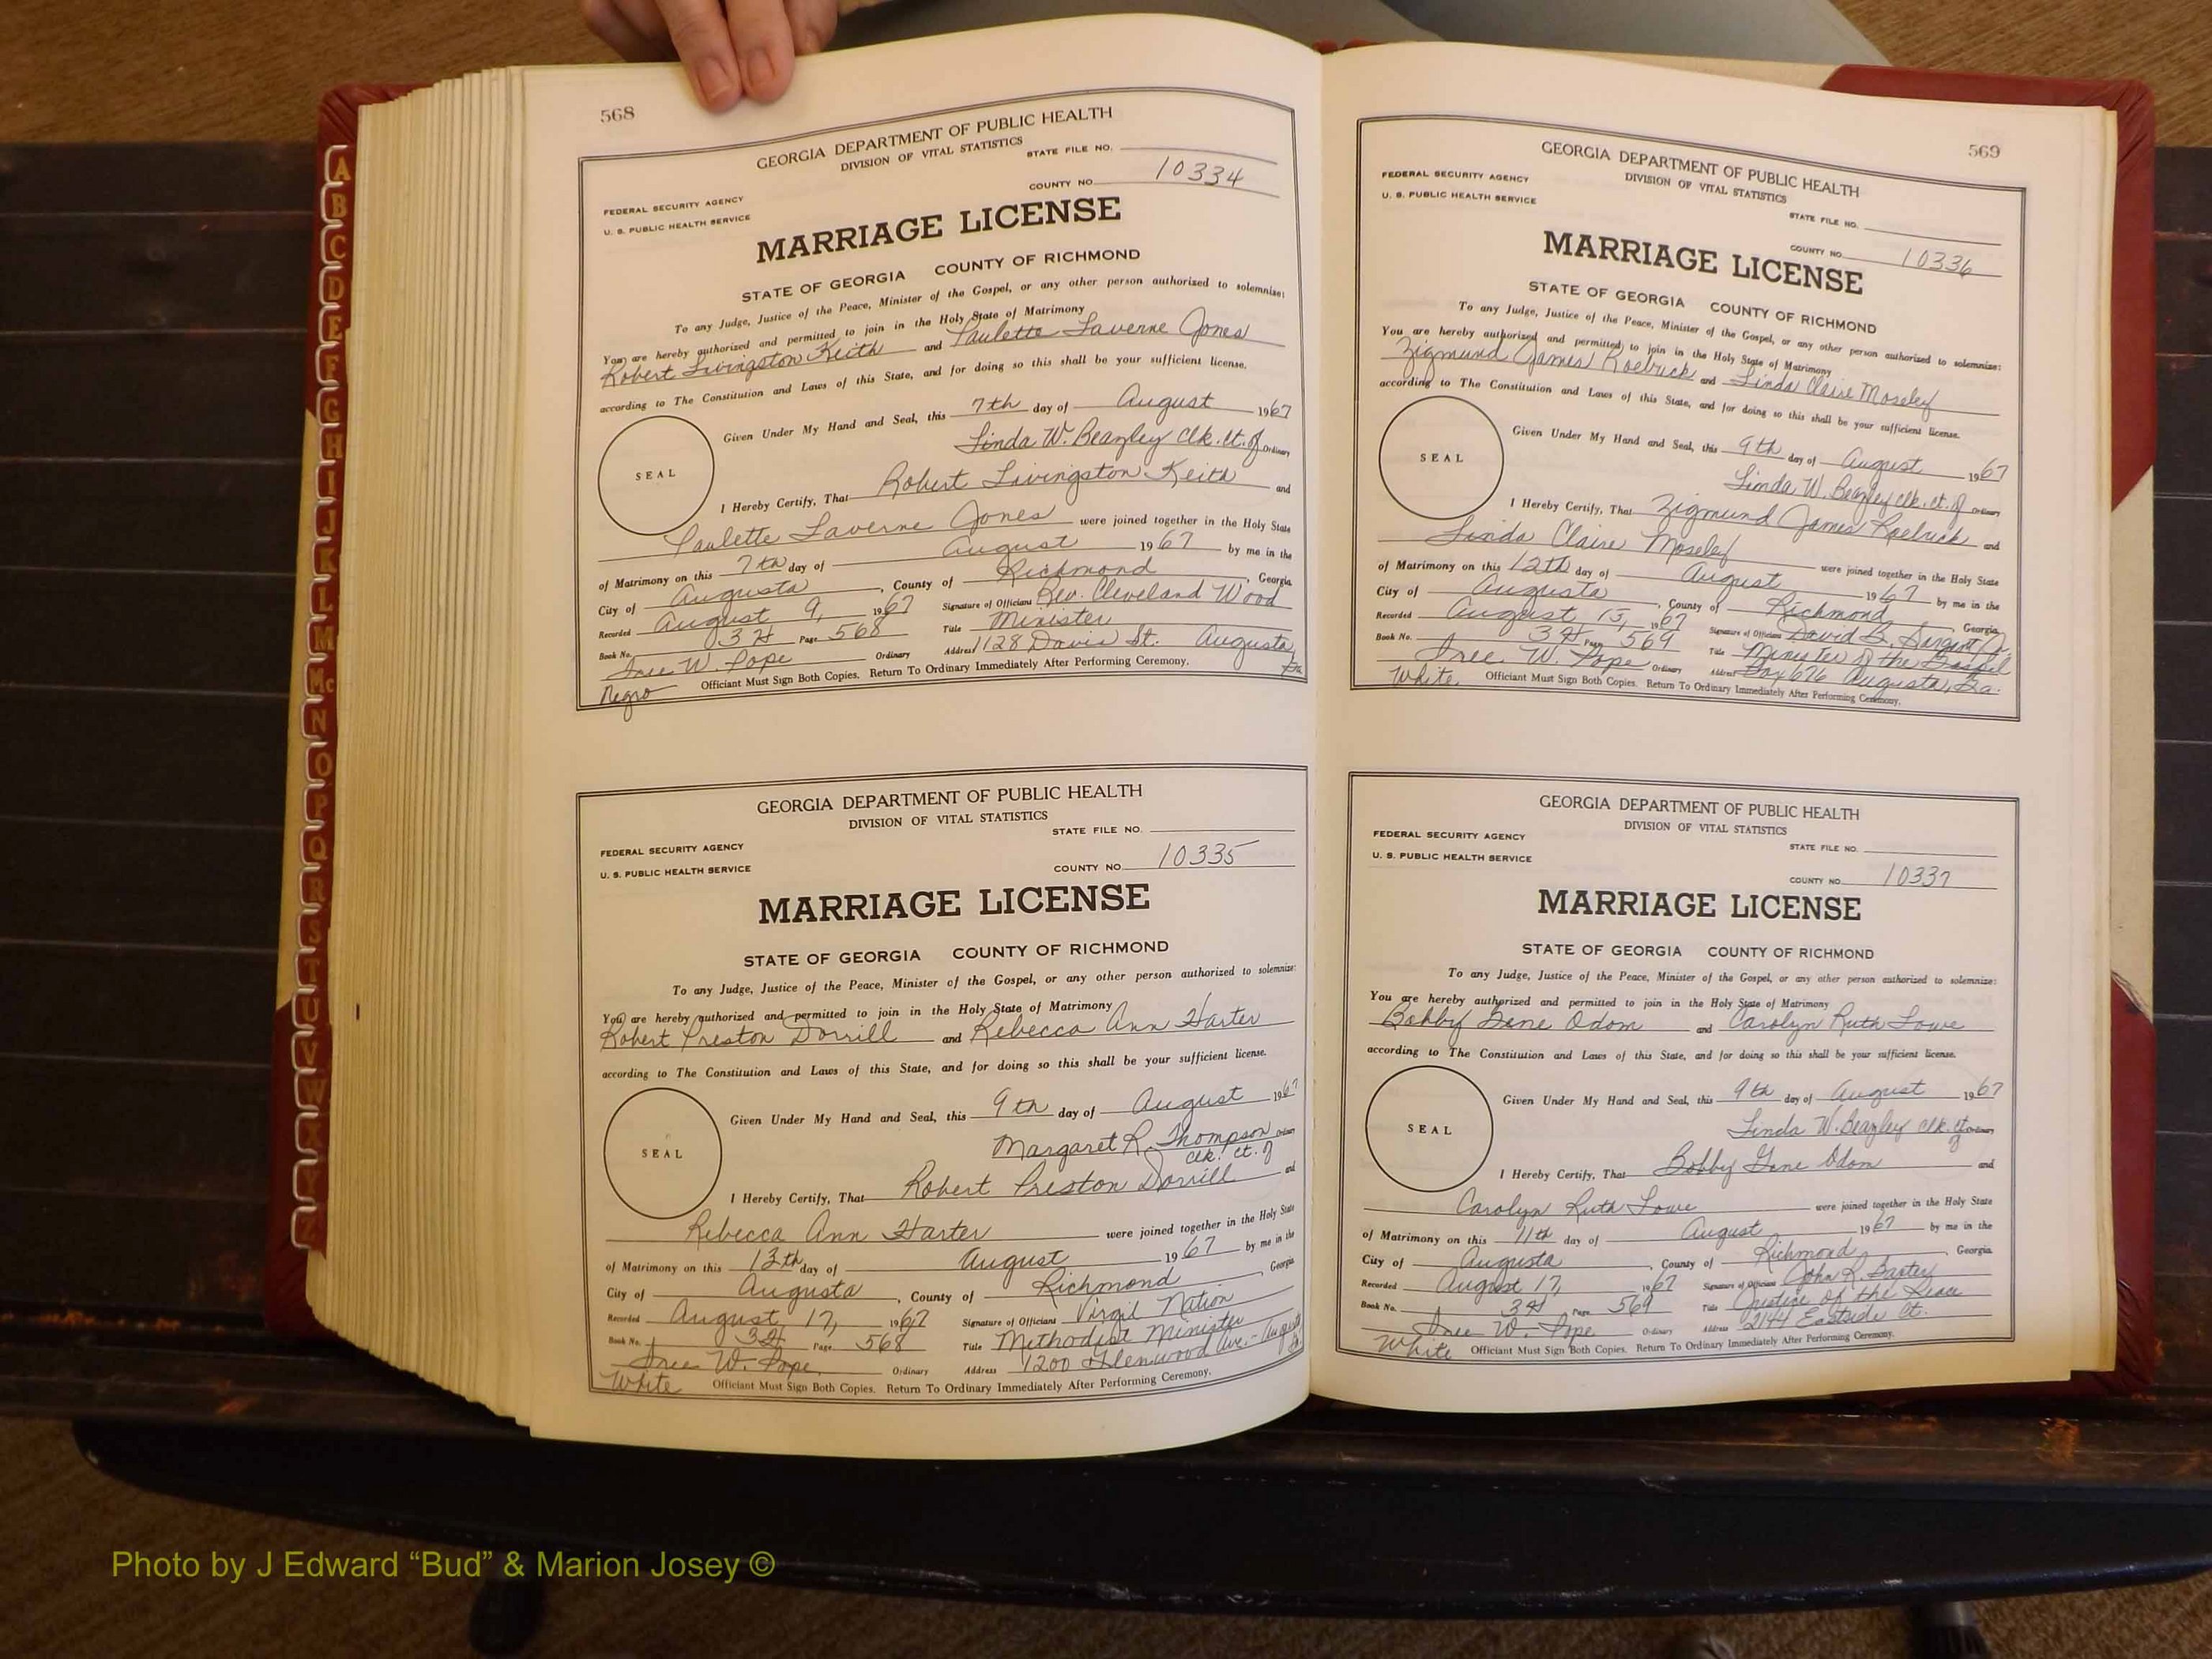 568
GEORGIA DEPARTMENT OF PUBLIC HEALTH
DIVISION OF VITAL STATISTICS
STATE FILE NO.
COUNTY NO. 10334
FEDERAL SECURITY AGENCY
U. S. PUBLIC HEALTH SERVICE
MARRIAGE LICENSE
STATE OF GEORGIA COUNTY OF RICHMOND
To any Judge, Justice of the Peace, Minister of the Gospel, or any other person authorized to solemnize:
You are hereby authorized and permitted to join in the Holy State of Matrimony
Robert Livingston Keith and Paulette Laverne Jones
according to The Constitution and Laws of this State, and for doing so this shall be your sufficient license.
Given Under My Hand and Seal, this 7th day of August 1967
Linda W. Beazley Clk. Ct. of Ordinary
SEAL
I Hereby Certify, That Robert Livingston Keith and
Paulette Laverne Jones were joined together in the Holy State
of Matrimony on this 7th day of August 1967 by me in the
City of Augusta, County of Richmond, Georgia.
Recorded August 9, 1967 Signature of Officiant Rev. Cleveland Wood
Book No. 3H Page 568 Title Minister
Inee W. Pope Ordinary Address 1128 Davis St. Augusta, Ga
Negro Officiant Must Sign Both Copies. Return To Ordinary Immediately After Performing Ceremony.
GEORGIA DEPARTMENT OF PUBLIC HEALTH
DIVISION OF VITAL STATISTICS
STATE FILE NO.
FEDERAL SECURITY AGENCY
U. S. PUBLIC HEALTH SERVICE
COUNTY NO. 10335
MARRIAGE LICENSE
STATE OF GEORGIA COUNTY OF RICHMOND
To any Judge, Justice of the Peace, Minister of the Gospel, or any other person authorized to solemnize:
You are hereby authorized and permitted to join in the Holy State of Matrimony
Robert Preston Dorrill and Rebecca Ann Harter
according to The Constitution and Laws of this State, and for doing so this shall be your sufficient license.
Given Under My Hand and Seal, this 9th day of August 1967
Margaret R. Thompson Ordinary
Clk. Ct. of
SEAL
I Hereby Certify, That Robert Preston Dorrill and
Rebecca Ann Harter were joined together in the Holy State
of Matrimony on this 13th day of August 1967 by me in the
City of Augusta, County of Richmond, Georgia
Recorded August 17, 1967 Signature of Officiant Virgil Nation
Book No. 3H Page 568 Title Methodist Minister
Inee W. Pope Ordinary Address 1200 Glenwood Ave. - Augusta Ga
White Officiant Must Sign Both Copies. Return To Ordinary Immediately After Performing Ceremony.
569
GEORGIA DEPARTMENT OF PUBLIC HEALTH
DIVISION OF VITAL STATISTICS
FEDERAL SECURITY AGENCY
U. S. PUBLIC HEALTH SERVICE
STATE FILE NO.
COUNTY NO. 10336
MARRIAGE LICENSE
STATE OF GEORGIA COUNTY OF RICHMOND
To any Judge, Justice of the Peace, Minister of the Gospel, or any other person authorized to solemnize:
You are hereby authorized and permitted to join in the Holy State of Matrimony
Zigmund James Roebuck and Linda Claire Moseley
according to The Constitution and Laws of this State, and for doing so this shall be your sufficient license.
Given Under My Hand and Seal, this 9th day of August 1967
Linda W. Beazley Clk. Ct. of Ordinary
SEAL
I Hereby Certify, That Zigmund James Roebuck and
Linda Claire Moseley were joined together in the Holy State
of Matrimony on this 12th day of August 1967 by me in the
City of Augusta, County of Richmond, Georgia
Recorded August 13, 1967 Signature of Officiant David B. Sargent Jr.
Book No. 3H Page 569 Title Minister of the Gospel
Inee W. Pope Ordinary Address Box 676 Augusta, Ga.
White. Officiant Must Sign Both Copies. Return To Ordinary Immediately After Performing Ceremony.
GEORGIA DEPARTMENT OF PUBLIC HEALTH
DIVISION OF VITAL STATISTICS
FEDERAL SECURITY AGENCY
STATE FILE NO.
U. S. PUBLIC HEALTH SERVICE
COUNTY NO. 10337
MARRIAGE LICENSE
STATE OF GEORGIA COUNTY OF RICHMOND
To any Judge, Justice of the Peace, Minister of the Gospel, or any other person authorized to solemnize:
You are hereby authorized and permitted to join in the Holy State of Matrimony
Bobby Gene Odom and Carolyn Ruth Lowe
according to The Constitution and Laws of this State, and for doing so this shall be your sufficient license.
Given Under My Hand and Seal, this 9th day of August 1967
Linda W. Beazley Clk. Ct. of Ordinary
SEAL
I Hereby Certify, That Bobby Gene Odom and
Carolyn Ruth Lowe were joined together in the Holy State
of Matrimony on this 11th day of August 1967 by me in the
City of Augusta, County of Richmond, Georgia
Recorded August 17, 1967 Signature of Officiant John R. Baxter
Book No. 3H Page 569 Title Justice of the Peace
Inee W. Pope Ordinary Address 2144 Eastside Ct.
White Officiant Must Sign Both Copies. Return To Ordinary Immediately After Performing Ceremony.
A
B
C
D
E
F
G
H
I
J
K
L
M
Mc
N
O
P
Q
R
S
T
U
V
W
X
Y
Z
Photo by J Edward “Bud” & Marion Josey ©